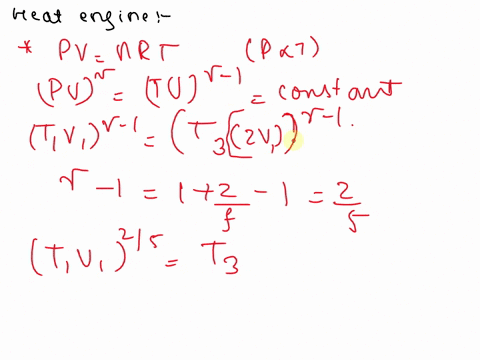 Heat engine:-
* PV = nRT (P∝T)
(PV)^r = (TV)^r-1 = constant
(T₁V₁)^r-1 = (T₃[(2V₁))^r-1.
r - 1 = 1 + 2/f - 1 = 2/5
(T₁V₁)^2/5 = T₃